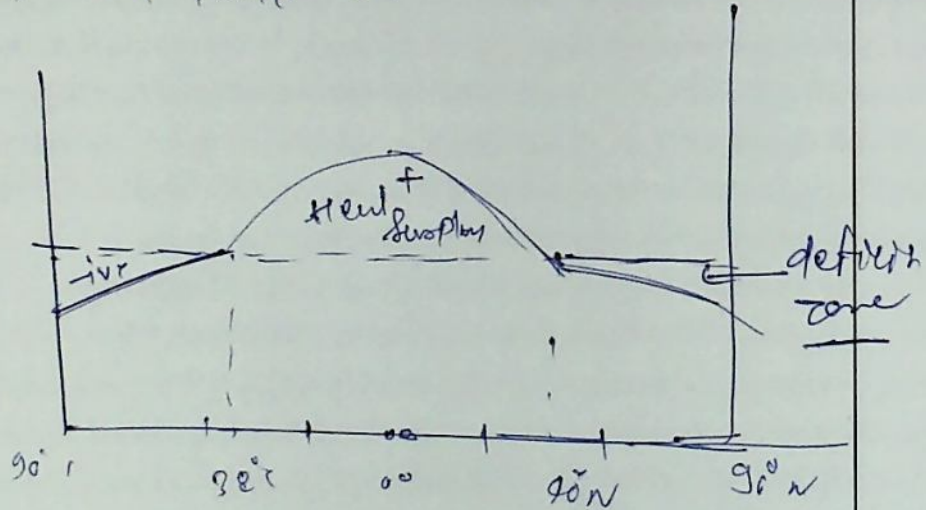 +
Heat Surplus
-ive
deficit
zone
90°
0°
40°N
90°N